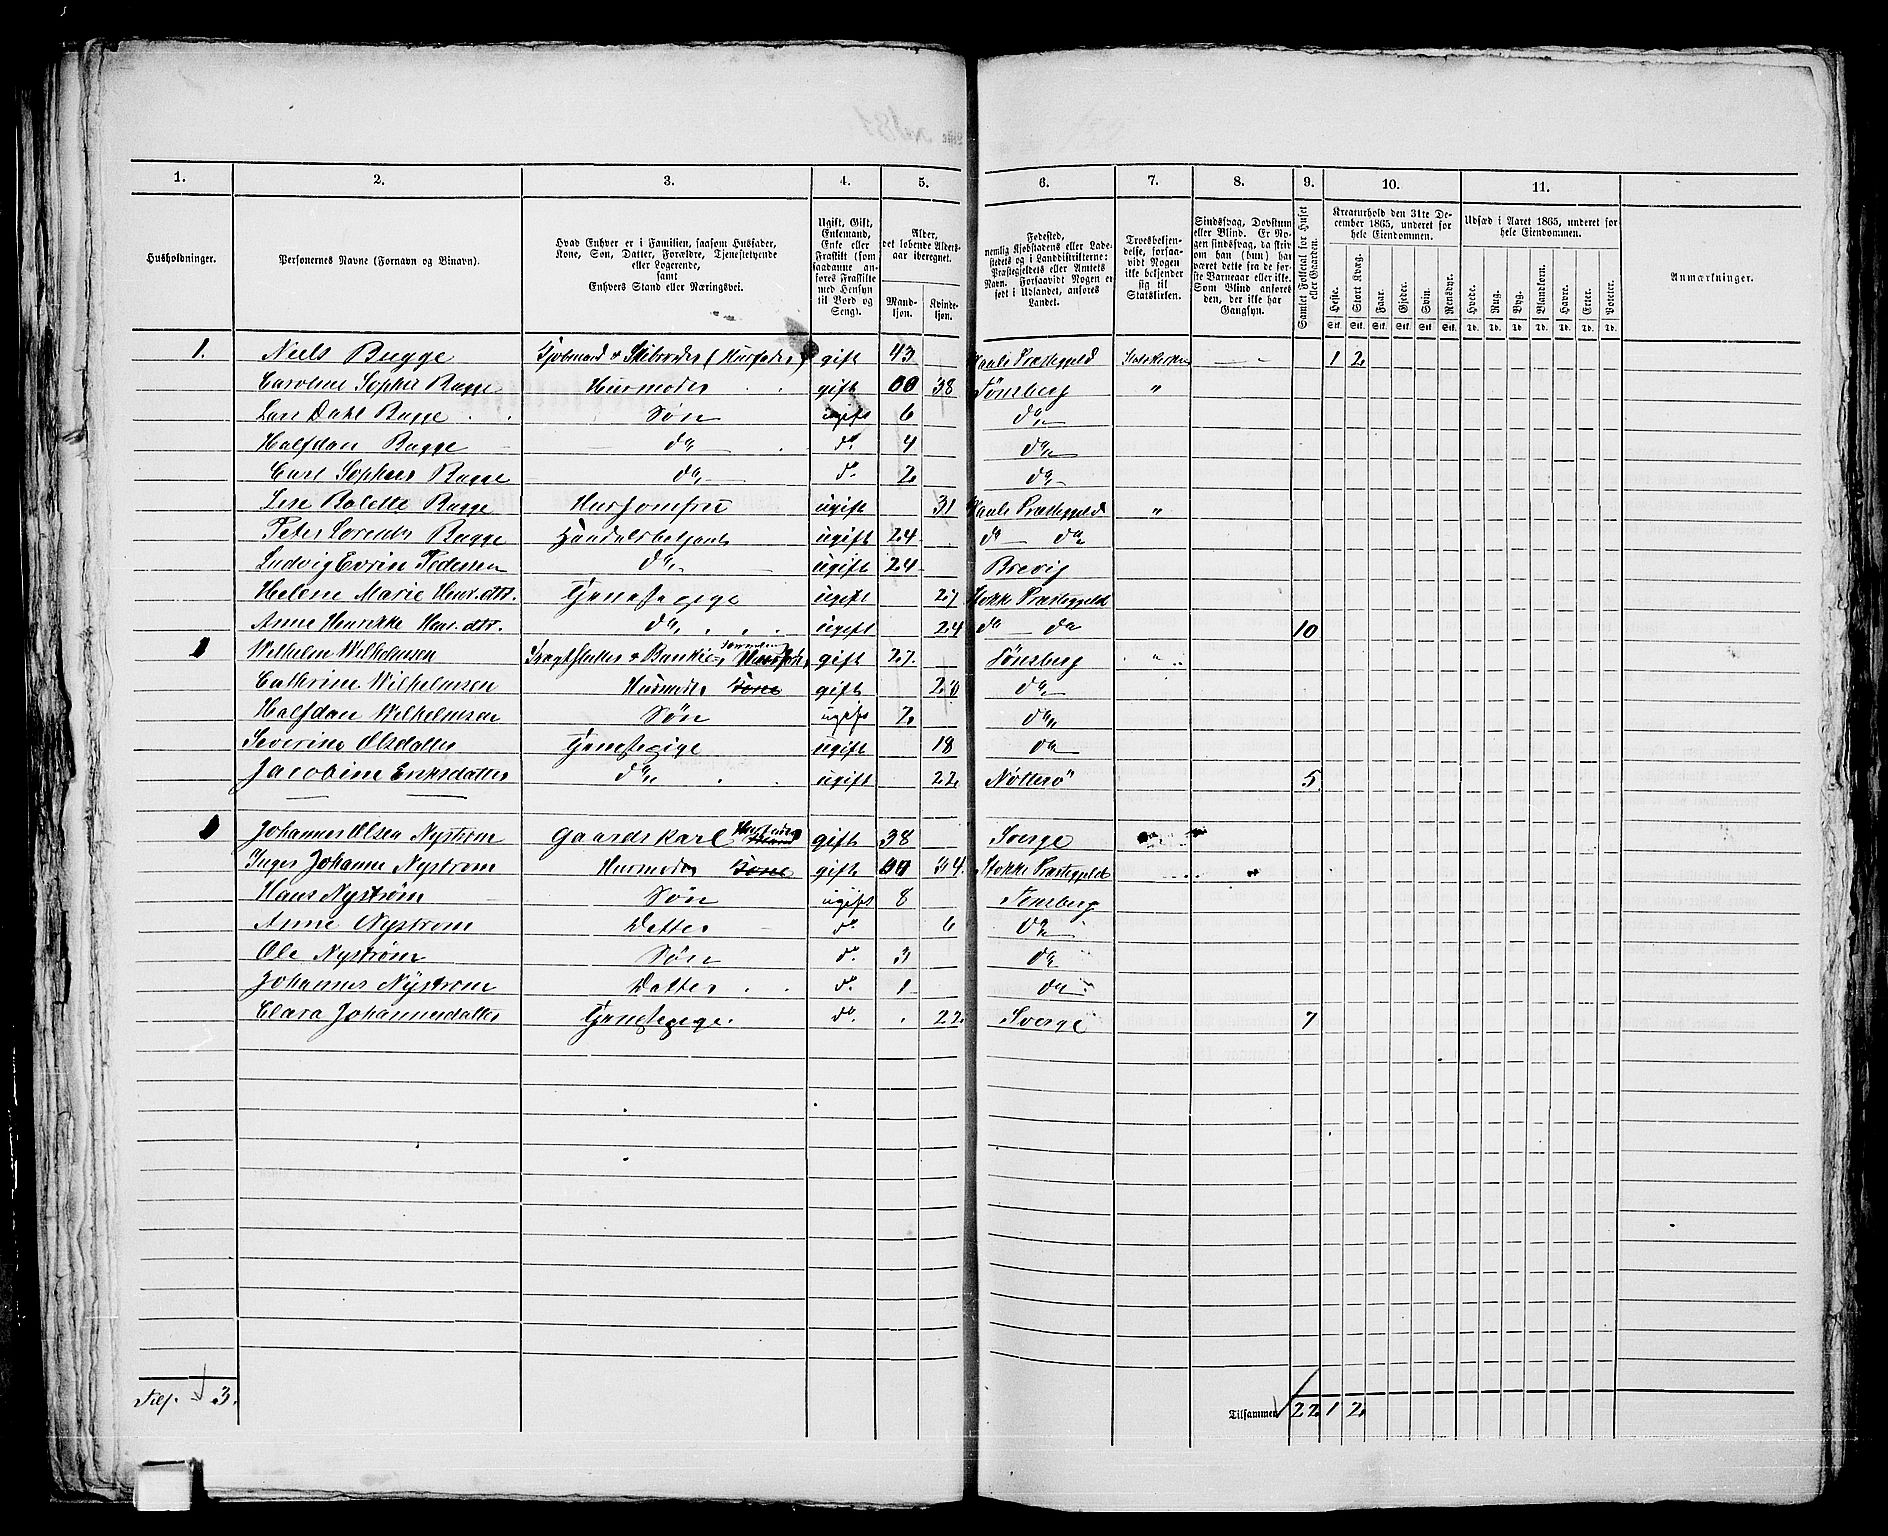 1. 2. 3. 4. 5. 6. 7. 8. 9. 10. 11.
Husholdninger.
Personernes Navne (Fornavn og Binavn).
Hvad Enhver er i Familien, saasom Husfader,
Kone, Søn, Datter, Forældre, Tjenestetyende
eller Logerende,
samt
Enhvers Stand eller Næringsvei.
Ugift, Gift,
Enkemand,
Enke eller
Fraskilt (som
saadanne an-
føres Fraskilte
med Hensyn
til Bord og
Seng).
Alder,
det løbende Alders-
aar iberegnet.
Mand-
kjøn.
Kvinde-
kjøn.
Fødested,
nemlig Kjøbstadens eller Lade-
stedets og i Landdistrikterne:
Præstegjeldets eller Amtets
Navn. Forsaavidt Nogen er
født i Udlandet, anføres
Landet.
Troesbekjen-
delse, forsaa-
vidt Nogen
ikke bekjender
sig til
Statskirken.
Sindssvag, Døvstum
eller Blind. Er No-
gen sindssvag, da skriv
om han (hun) har
været dette fra de før-
ste Barneaar eller ikke.
Som Blind anføres
den, der ikke har
Gangsyn.
Samlet Folketal for Huset
eller Gaarden.
Kreaturhold den 31te De-
cember 1865, underet for
hele Eiendommen.
Heste. Stort Kvæg. Faar. Gjeder. Svin. Rensdyr.
Stk. Stk. Stk. Stk. Stk. Stk.
Udsæd i Aaret 1865, underet for
hele Eiendommen.
Hvede. Rug. Byg. Blandkorn. Havre. Erter. Poteter.
Td. Td. Td. Td. Td. Td. Td.
Anmærkninger.
1. Niels Bugge Kjøbmand & Skibsreder (Husfader) gift 43 Præstegjeld Statskirken 1 2
Caroline Sophie Bugge Husmoder gift 38 Tønsberg "
Lars Dahl Bugge Søn ugift 6 do
Halfdan Bugge do do 4 do
Carl Sophus Bugge do do 2 do
Lise Bolette Bugge Husjomfru ugift 31 Præstegjeld "
Peter Lorentz Bugge Handelsbetjent ugift 24 do do
Ludvig Pedersen do ugift 24 Brevig
Helene Marie Henr.dtr. Tjenestepige ugift 27 Stokke Præstegjeld
Anne Henrikke Henr.dtr. do ugift 24 do do 10
1 Wilhelm Wilhelmsen gift 27 Tønsberg "
Cathrine Wilhelmsen Husmoder Kone gift Do
Halfdan Wilhelmsen Søn ugift 2 do
Severine Olsdatter Tjenestepige ugift 18 do
Jacobine Eriksdatter do ugift 22 Nøtterö 5
1 Johannes Olsen Nystrøm Gaardskarl Husfader gift 38 Sverge
Inger Johanne Nystrøm Husmoder Kone gift 34 Stokke Præstegjeld
Hans Nystrøm Søn ugift 8 Tønsberg
Anne Nystrøm Datter do 6 do
Ole Nystrøm Søn do 3 do
Johannes Nystrøm Datter do 1 do
Clara Johannesdatter Tjenestepige do 22 Sverge 7
Tils. 3.
Tilsammen 22 1 2